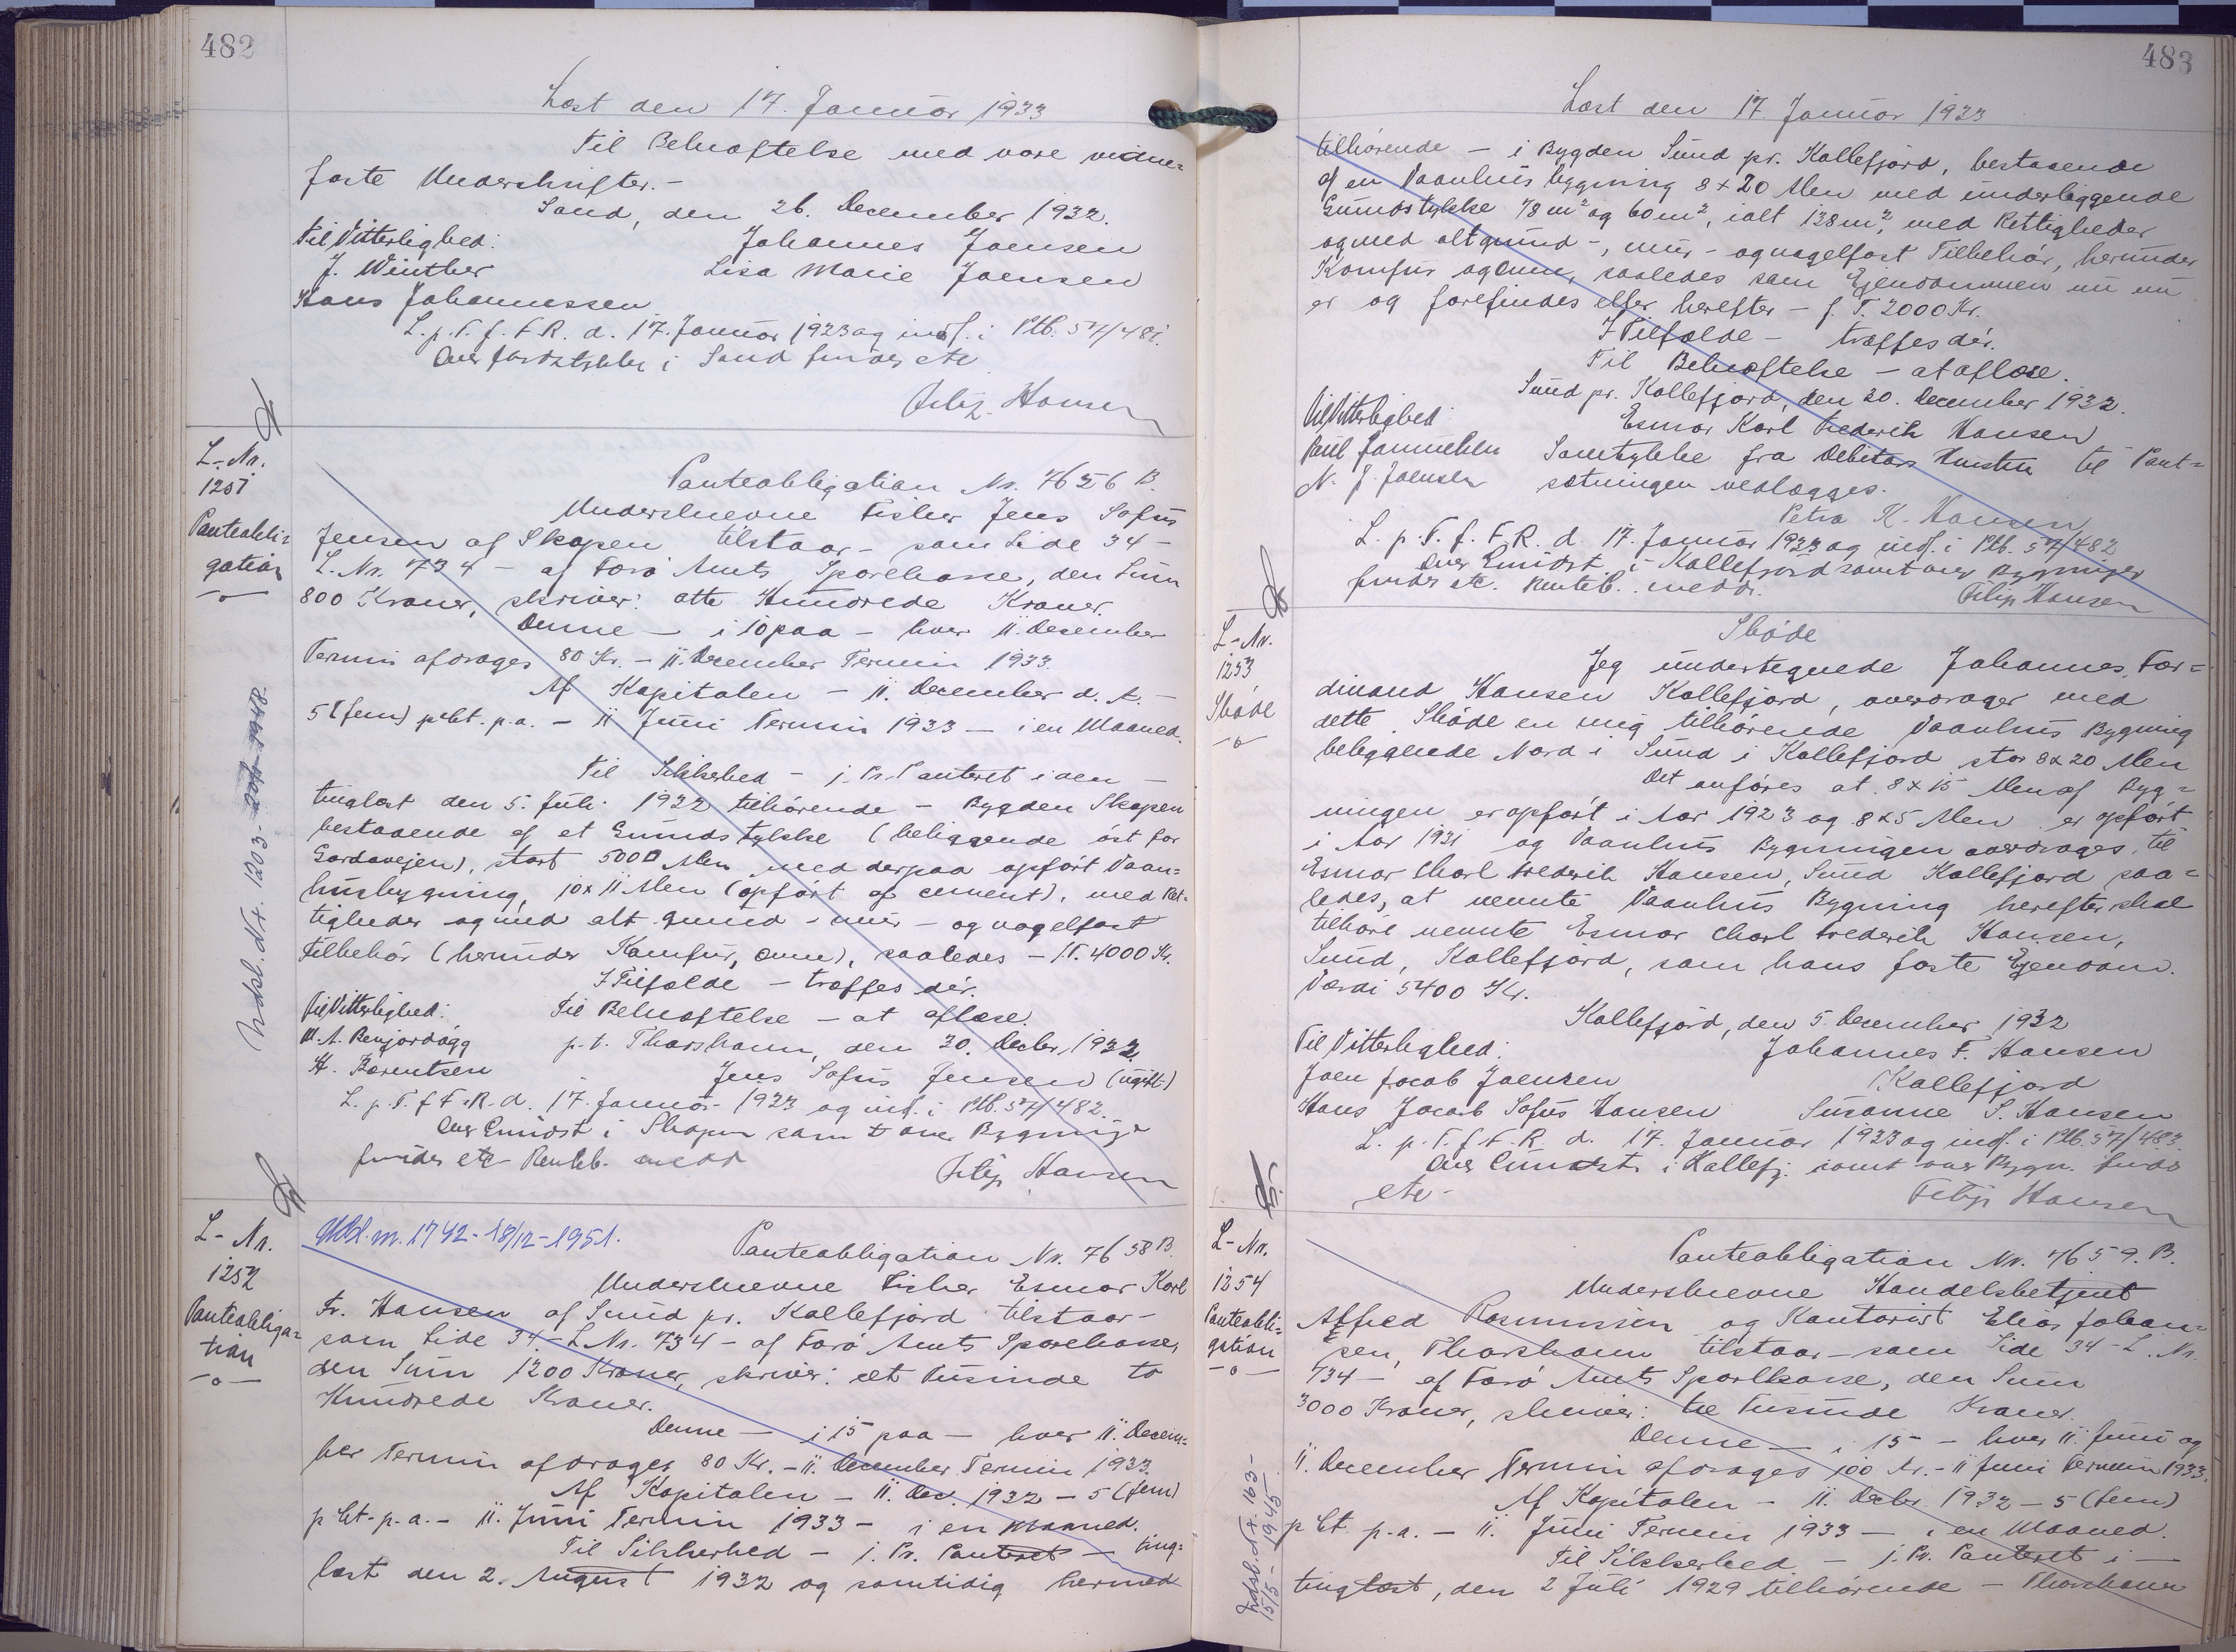 482
Læst den 17. Januar 1933
Til Bekræftelse med vore vidne-
faste Underskrifter.-
Sand, den 26. December 1932.
Til Vitterlighed: Johannes Joensen
J. Winther Lisa Marie Joensen
Hans Johannessen
L. p. T. f. F. R. d. 17. Januar 1933 og indf. i Ptb. 57/481.
Over Jordstykker i Sand findes etc
Filip Hansen
L.-Nr.
1251
Panteobli-
gation
Panteobligation Nr. 7656 B.
Underskrevne Fisker Jens Sofus
Jensen af Skopen tilstaar - som Side 34 -
L. Nr. 734 - af Færø Amts Sparekasse, den Sum
800 Kroner, skriver: otte Hundrede Kroner.
Denne - i 10 paa - hver 11. December
Termin afdrages 80 Kr. - 11. December Termin 1933.
Af Kapitalen - 11. December d. A. -
5 (fem) pCt. p.a. - 11 Juni Termin 1933 - i en Maaned.
Til Sikkerhed - j. Pr. Panteret i den -
tinglæst den 5. Juli 1932 tilhørende - Bygden Skopen
bestaaende af et Grundstykke (beliggende øst for
Gardavejen), stort 500 □ Alen med derpaa opført Vaan-
husbygning, 10 x 11 Alen (opført af cement), med Ret-
tigheder og med alt grund - mur - og nagelfast
Tilbehør (herunder Komfur, Ovne), saaledes - f. T. 4000 Kr.
I Tilfælde - træffes dér.
Til Vitterlighed: Til Bekræftelse - at aflæse.
M. A. Benjordøgg p. t. Thorshavn, den 30. Decbr. 1932
H. Barentsen Jens Sofus Jensen (ugift)
L. p. T. f. F. R. d. 17. Januar 1933 og indf. i Ptb. 57/482.
Over Grundst i Skopen samt over Bygninge
findes etc Renteb. medd
Filip Hansen
Indsb. d. Nr. 1203
L.- Nr.
1252
Panteobliga-
tion
Udsl. m. 1742 - 18/12 - 1951.
Panteobligation Nr. 7658 B.
Underskrevne Fisker Esmar Karl
Fr. Hansen af Sund pr. Kollefjord tilstaar -
som Side 34 - L. Nr. 734 - af Færø Amts Sparekasse,
den Sum 1200 Kroner, skriver: et Tusinde to
Hundrede Kroner.
Denne - i 15 paa - hver 11. Decem-
ber Termin afdrages 80 Kr. - 11. December Termin 1933.
Af Kapitalen - 11. Dec 1932 - 5 (fem)
pCt. p.a. - 11. Juni Termin 1933 - i en Maaned.
Til Sikkerhed - j. Pr. Panteret - ting-
læst den 2. August 1932 og samtidig hermed
483
Læst den 17. Januar 1933
tilhørende - i Bygden Sund pr. Kollefjord, bestaaende
af en Vaanhus bygning 8 x 20 Alen med underliggende
Grundstykke 78 m² og 60 m², ialt 138 m², med Rettigheder
og med alt grund -, mur - og nagelfast Tilbehør, herunder
Komfur og Ovne, saaledes som Ejendommen nu en
er og forefindes eller herefter - f. T. 2000 Kr.
I Tilfælde - træffes dér.
Til Bekræftelse - at aflæse.
Sund pr. Kollefjord, den 30. December 1932.
Til Vitterlighed: Esmar Karl Frederik Hansen
Poul Samuelsen Samtykke fra Debitors Hustru til Pant-
N. J. Joensen sætningen vedlægges.
Petra K. Hansen
L. p. T. f. F. R. d. 17. Januar 1933 og indf. i Ptb. 57/482
Over Grundst. i Kollefjord samt over Bygninger
findes etc. Renteb. medd.
Filip Hansen
L.-Nr.
1253
Skøde
Skøde
Jeg undertegnede Johannes Fær-
dinand Hansen Kollefjord, overdrager med
dette Skøde en mig tilhørende Vaanhus Bygning
beliggende Nord i Sund i Kollefjord stor 8 x 20 Alen
Det anføres at 8 x 15 Alen af Byg-
ningen er opført i Aar 1923 og 8 x 5 Alen er opført
i Aar 1931 og Vaanhus Bygningen overdrages til
Esmar Charl Frederik Hansen, Sund Kollefjord saa-
ledes, at nævnte Vaanhus Bygning herefter skal
tilhøre nævnte Esmar Charl Frederik Hansen,
Sund, Kollefjord, som hans faste Ejendom.
Værdi 5400 Kr.
Kollefjord, den 5. December 1932
Til Vitterlighed: Johannes F. Hansen
Joen Jacob Joensen Kollefjord
Hans Jacob Sofus Hansen Susanne S. Hansen
L. p. T. f. F. R. d. 17. Januar 1933 og indf. i Ptb. 57/483.
Over Grundst. i Kollefj. samt over Bygn. findes
etc -
Filip Hansen
L.-Nr.
1254
Panteobli-
gation
Panteobligation Nr. 7659. B.
Underskrevne Handelsbetjent
Alfred Rasmussen og Kontorist Elias Johan-
sen, Thorshavn tilstaar - som Side 34 - L. Nr.
734 - af Færø Amts Sparekasse, den Sum
3000 Kroner, skriver: tre Tusinde Kroner.
Denne - i 15 - hver 11. Juni og
11. December Termin afdrages 100 Kr. - 11 Juni Termin 1933.
Af Kapitalen - 11. Decbr. 1932 - 5 (fem)
pCt. p.a. - 11. Juni Termin 1933 - i en Maaned.
Til Sikkerhed - j. Pr. Panteret i -
tinglæst, den 2 Juli 1929 tilhørende - Thorshavn
Indsb. d. Nr. 163 -
15/5 - 1945.